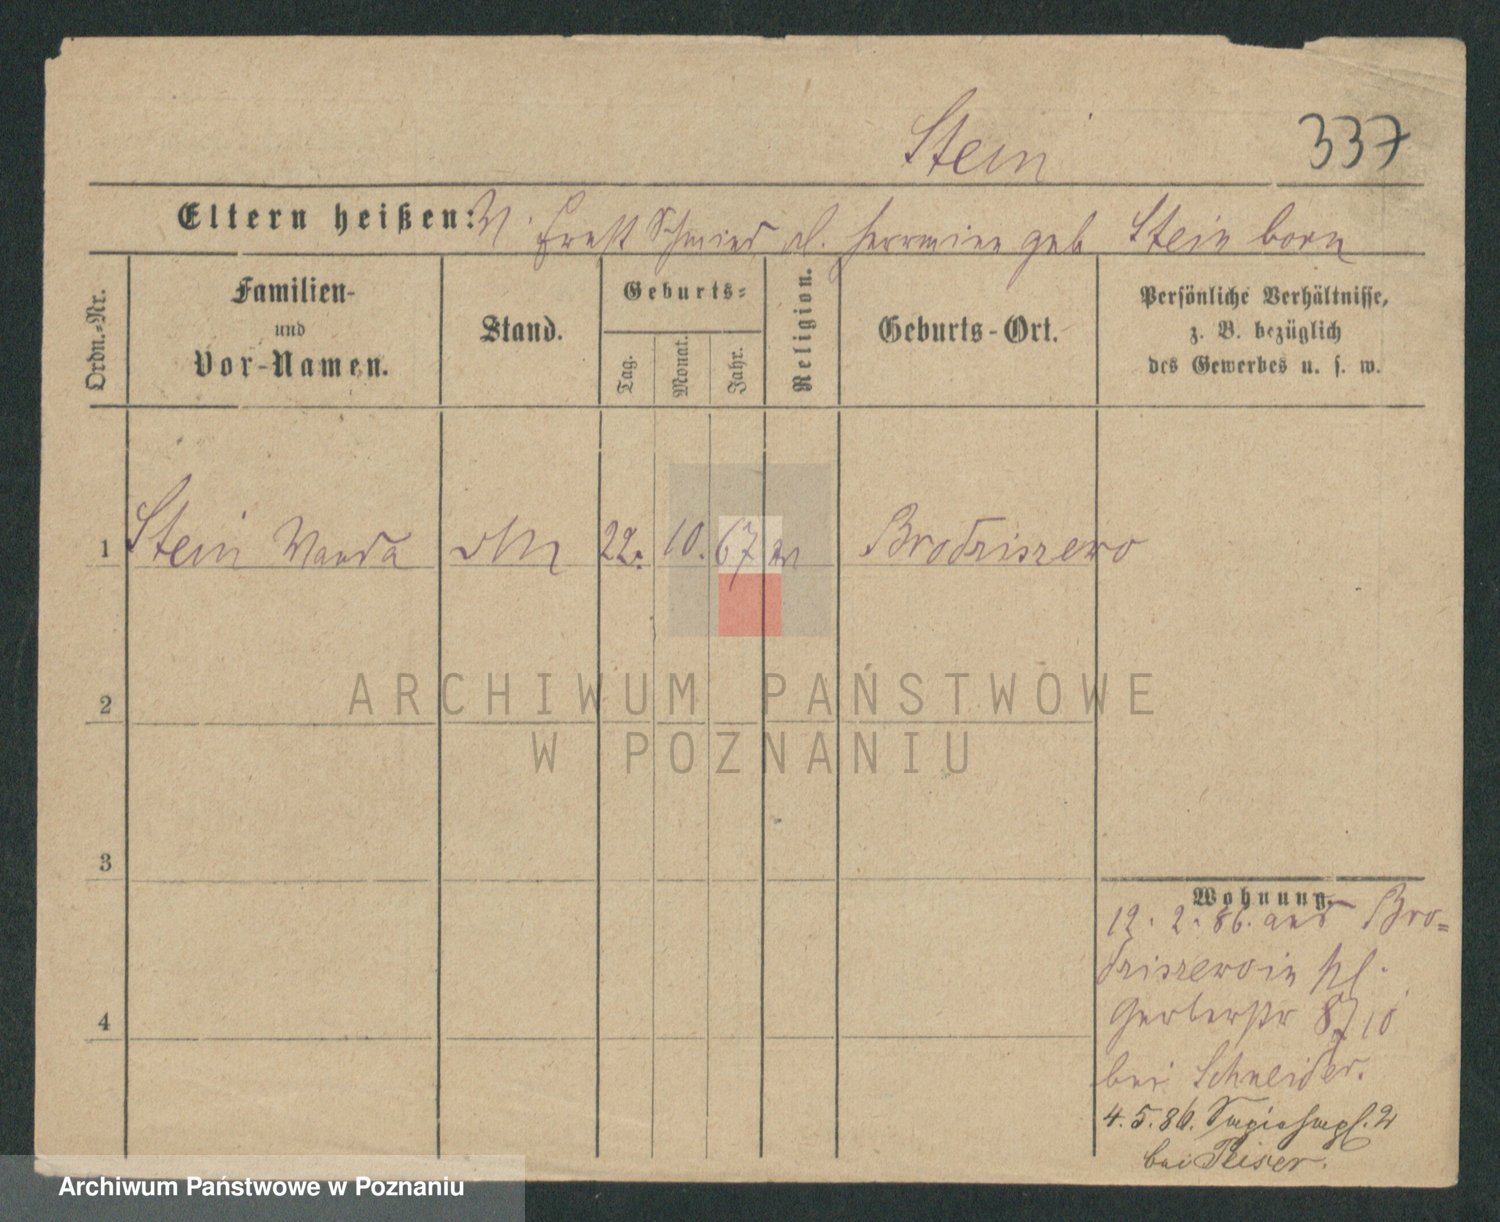 Stein
337
Eltern heißen: V. Ernst Schmied, M. Hermine geb Stein born
Ordn.-Nr.
Familien-
und
Vor-Namen.
Stand.
Geburts-
Tag.
Monat.
Jahr.
Religion.
Geburts-Ort.
Persönliche Verhältnisse,
z. B. bezüglich
des Gewerbes u. s. w.
1 Stein Wanda 22. 10. 67 Brodziszewo
2
3
4
Wohnung.
12. 2. 86. aus Bro-
dziszewo in Kl.
Gerberstr 8/10
bei Schneider.
4. 5. 86. 2
bei Peiser.
ARCHIWUM PAŃSTWOWE
W POZNANIU
Archiwum Państwowe w Poznaniu